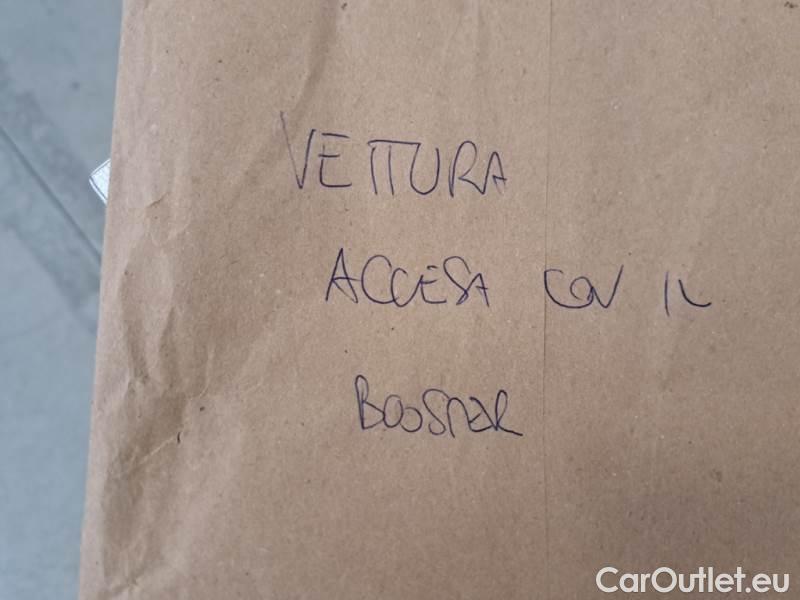 VETTURA
ACCESA CON IL
BOOSTER
CarOutlet.eu